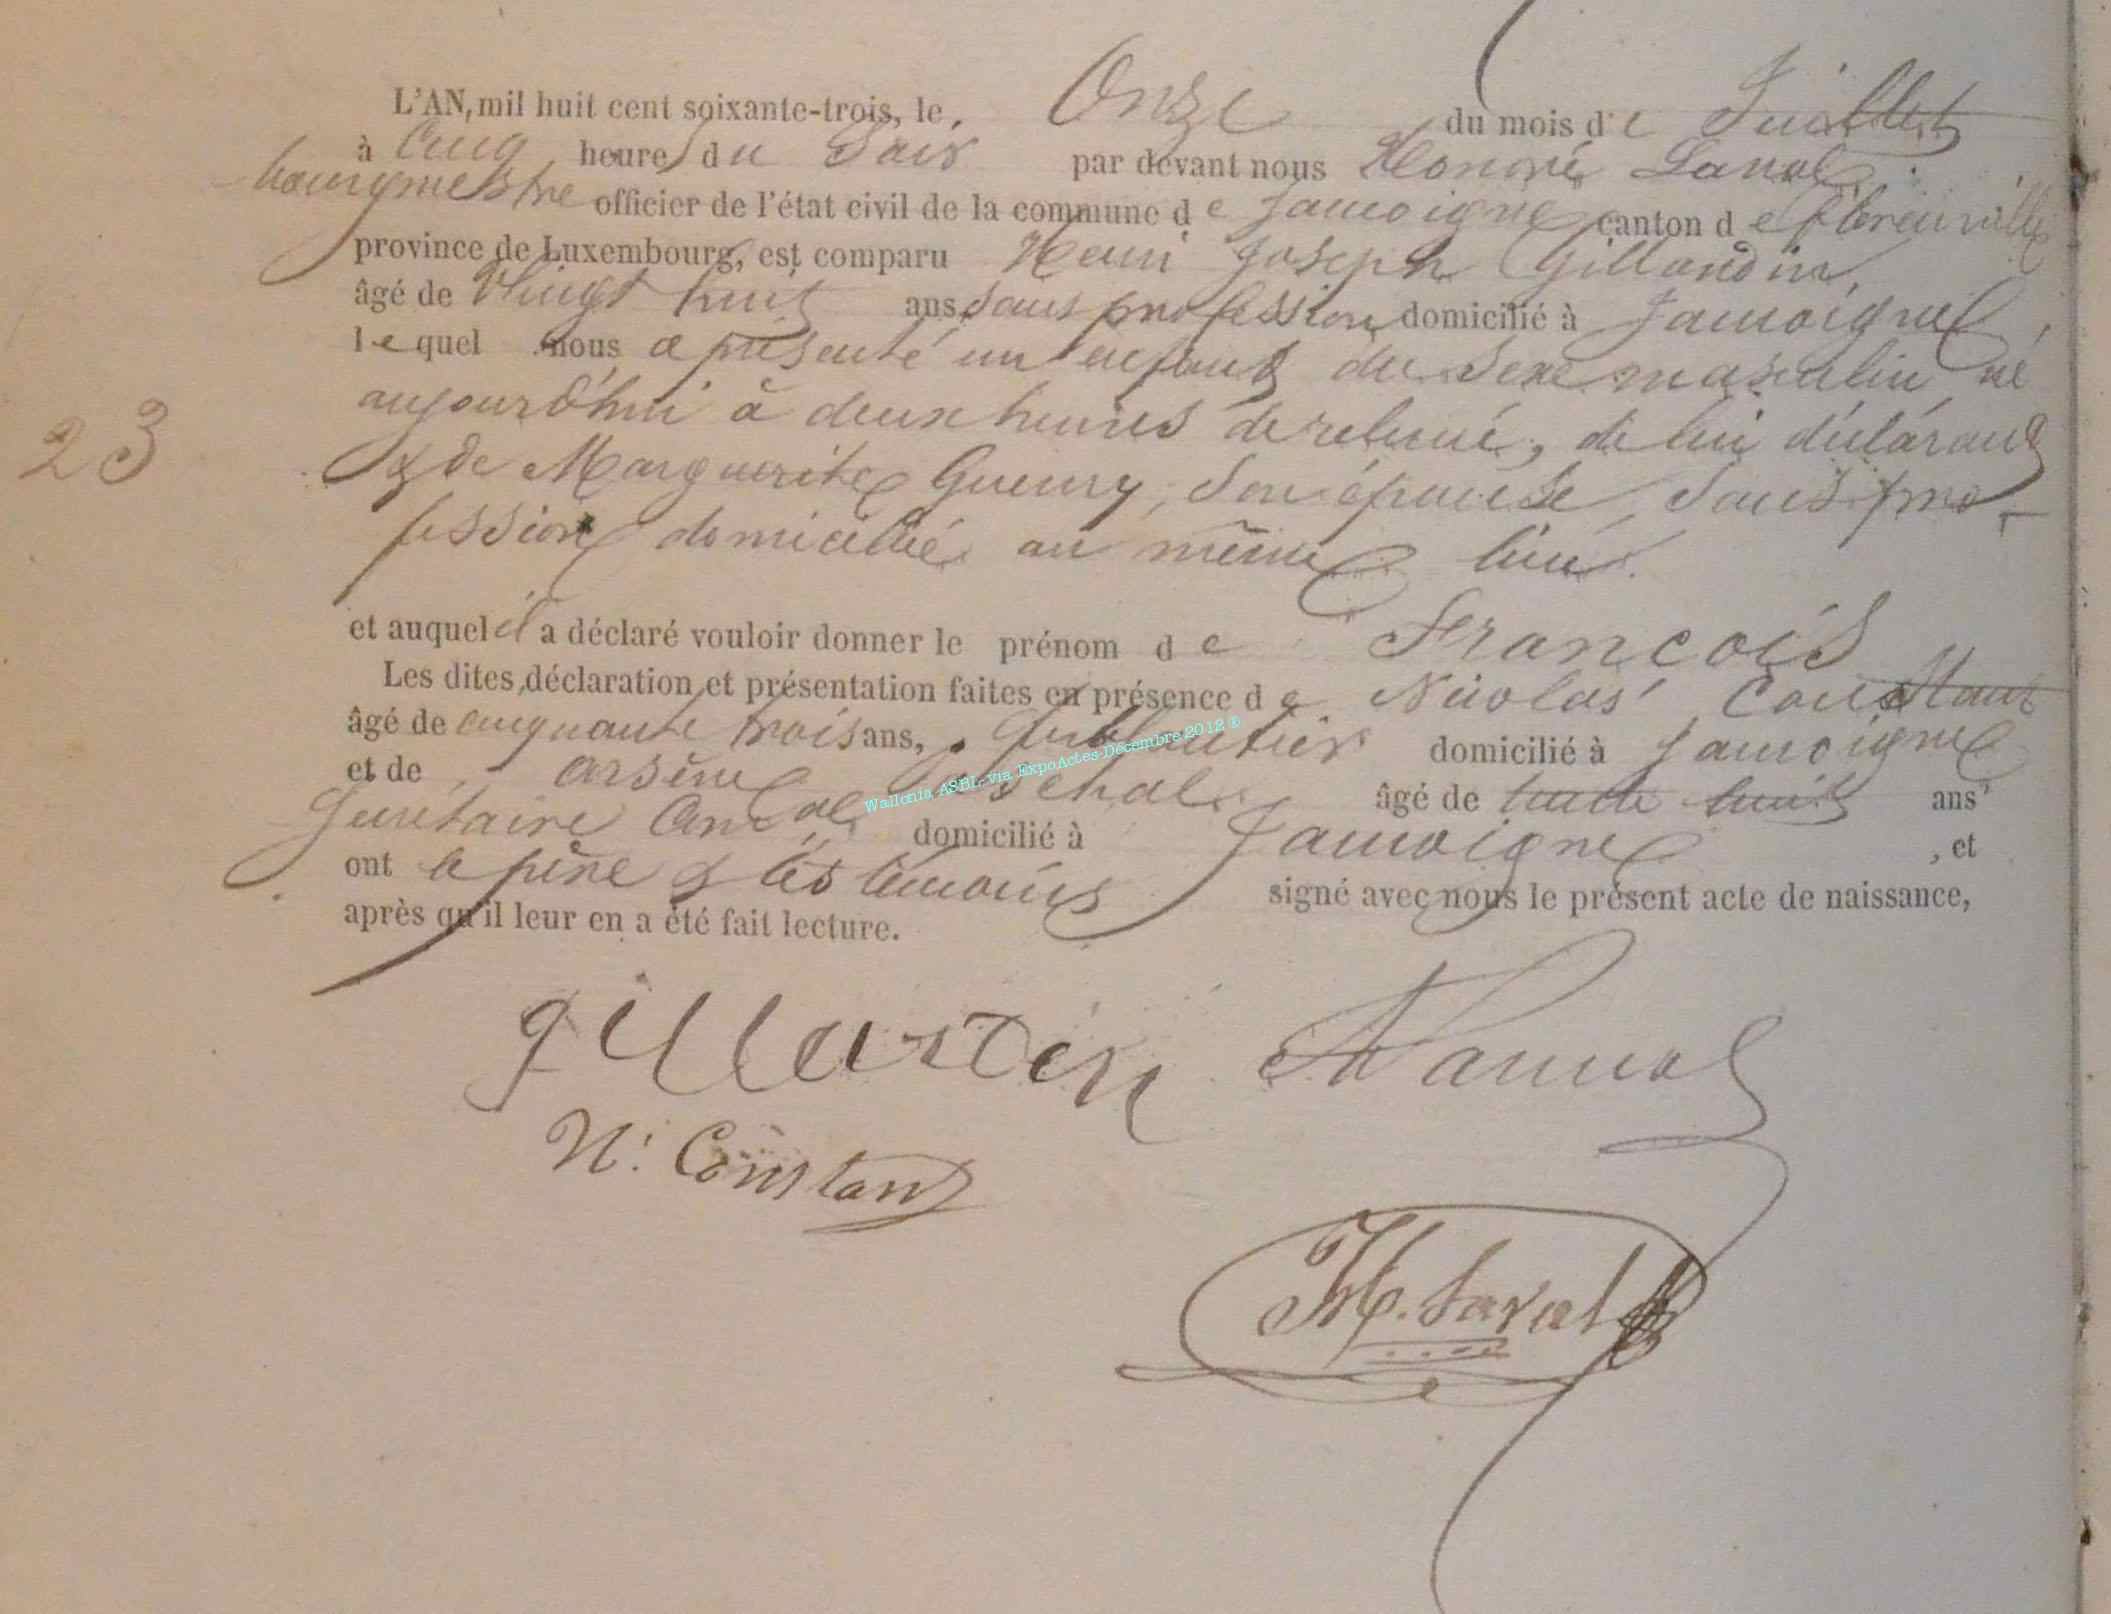 L'AN, mil huit cent soixante-trois, le Onze du mois de Juillet
à Cinq heures du Soir par devant nous Honoré Laval
bourgmestre officier de l'état civil de la commune de Jamoigne canton de florenville
province de Luxembourg, est comparu Henri Joseph Gillardin,
âgé de Vingt huit ans, sans profession, domicilié à Jamoigne,
lequel nous a présenté un enfant du sexe masculin né
aujourd'hui à deux heures de relevé, de lui déclarant
23
& de Marguerite Guerry, son épouse, sans pro-
fession domiciliée au même lieu.
et auquel il a déclaré vouloir donner le prénom de François
Les dites déclaration et présentation faites en présence de Nicolas Constant
âgé de cinquante trois ans, domicilié à Jamoigne
et de arsène âgé de trente huit ans
Secrétaire Comal domicilié à Jamoigne, et
ont le père & les témoins signé avec nous le présent acte de naissance,
après qu'il leur en a été fait lecture.
Wallonia ASBL, via ExpoActes Décembre 2012 ®
gillardin
N. Constant
H. Laval